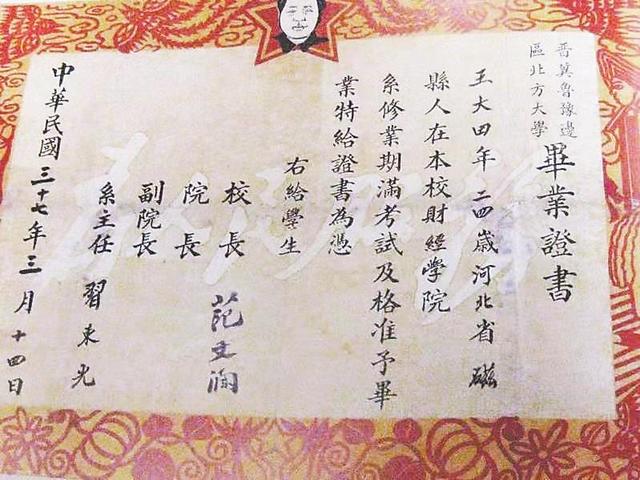 晋冀魯豫邊
區北方大學
畢業證書
王大四年二四歲河北省磁
縣人在本校財經學院
系修業期滿考試及格准予畢
業特給證書為憑
右給學生
校長 范文瀾
院長
副院長
系主任 習東光
中華民國三十七年三月十四日